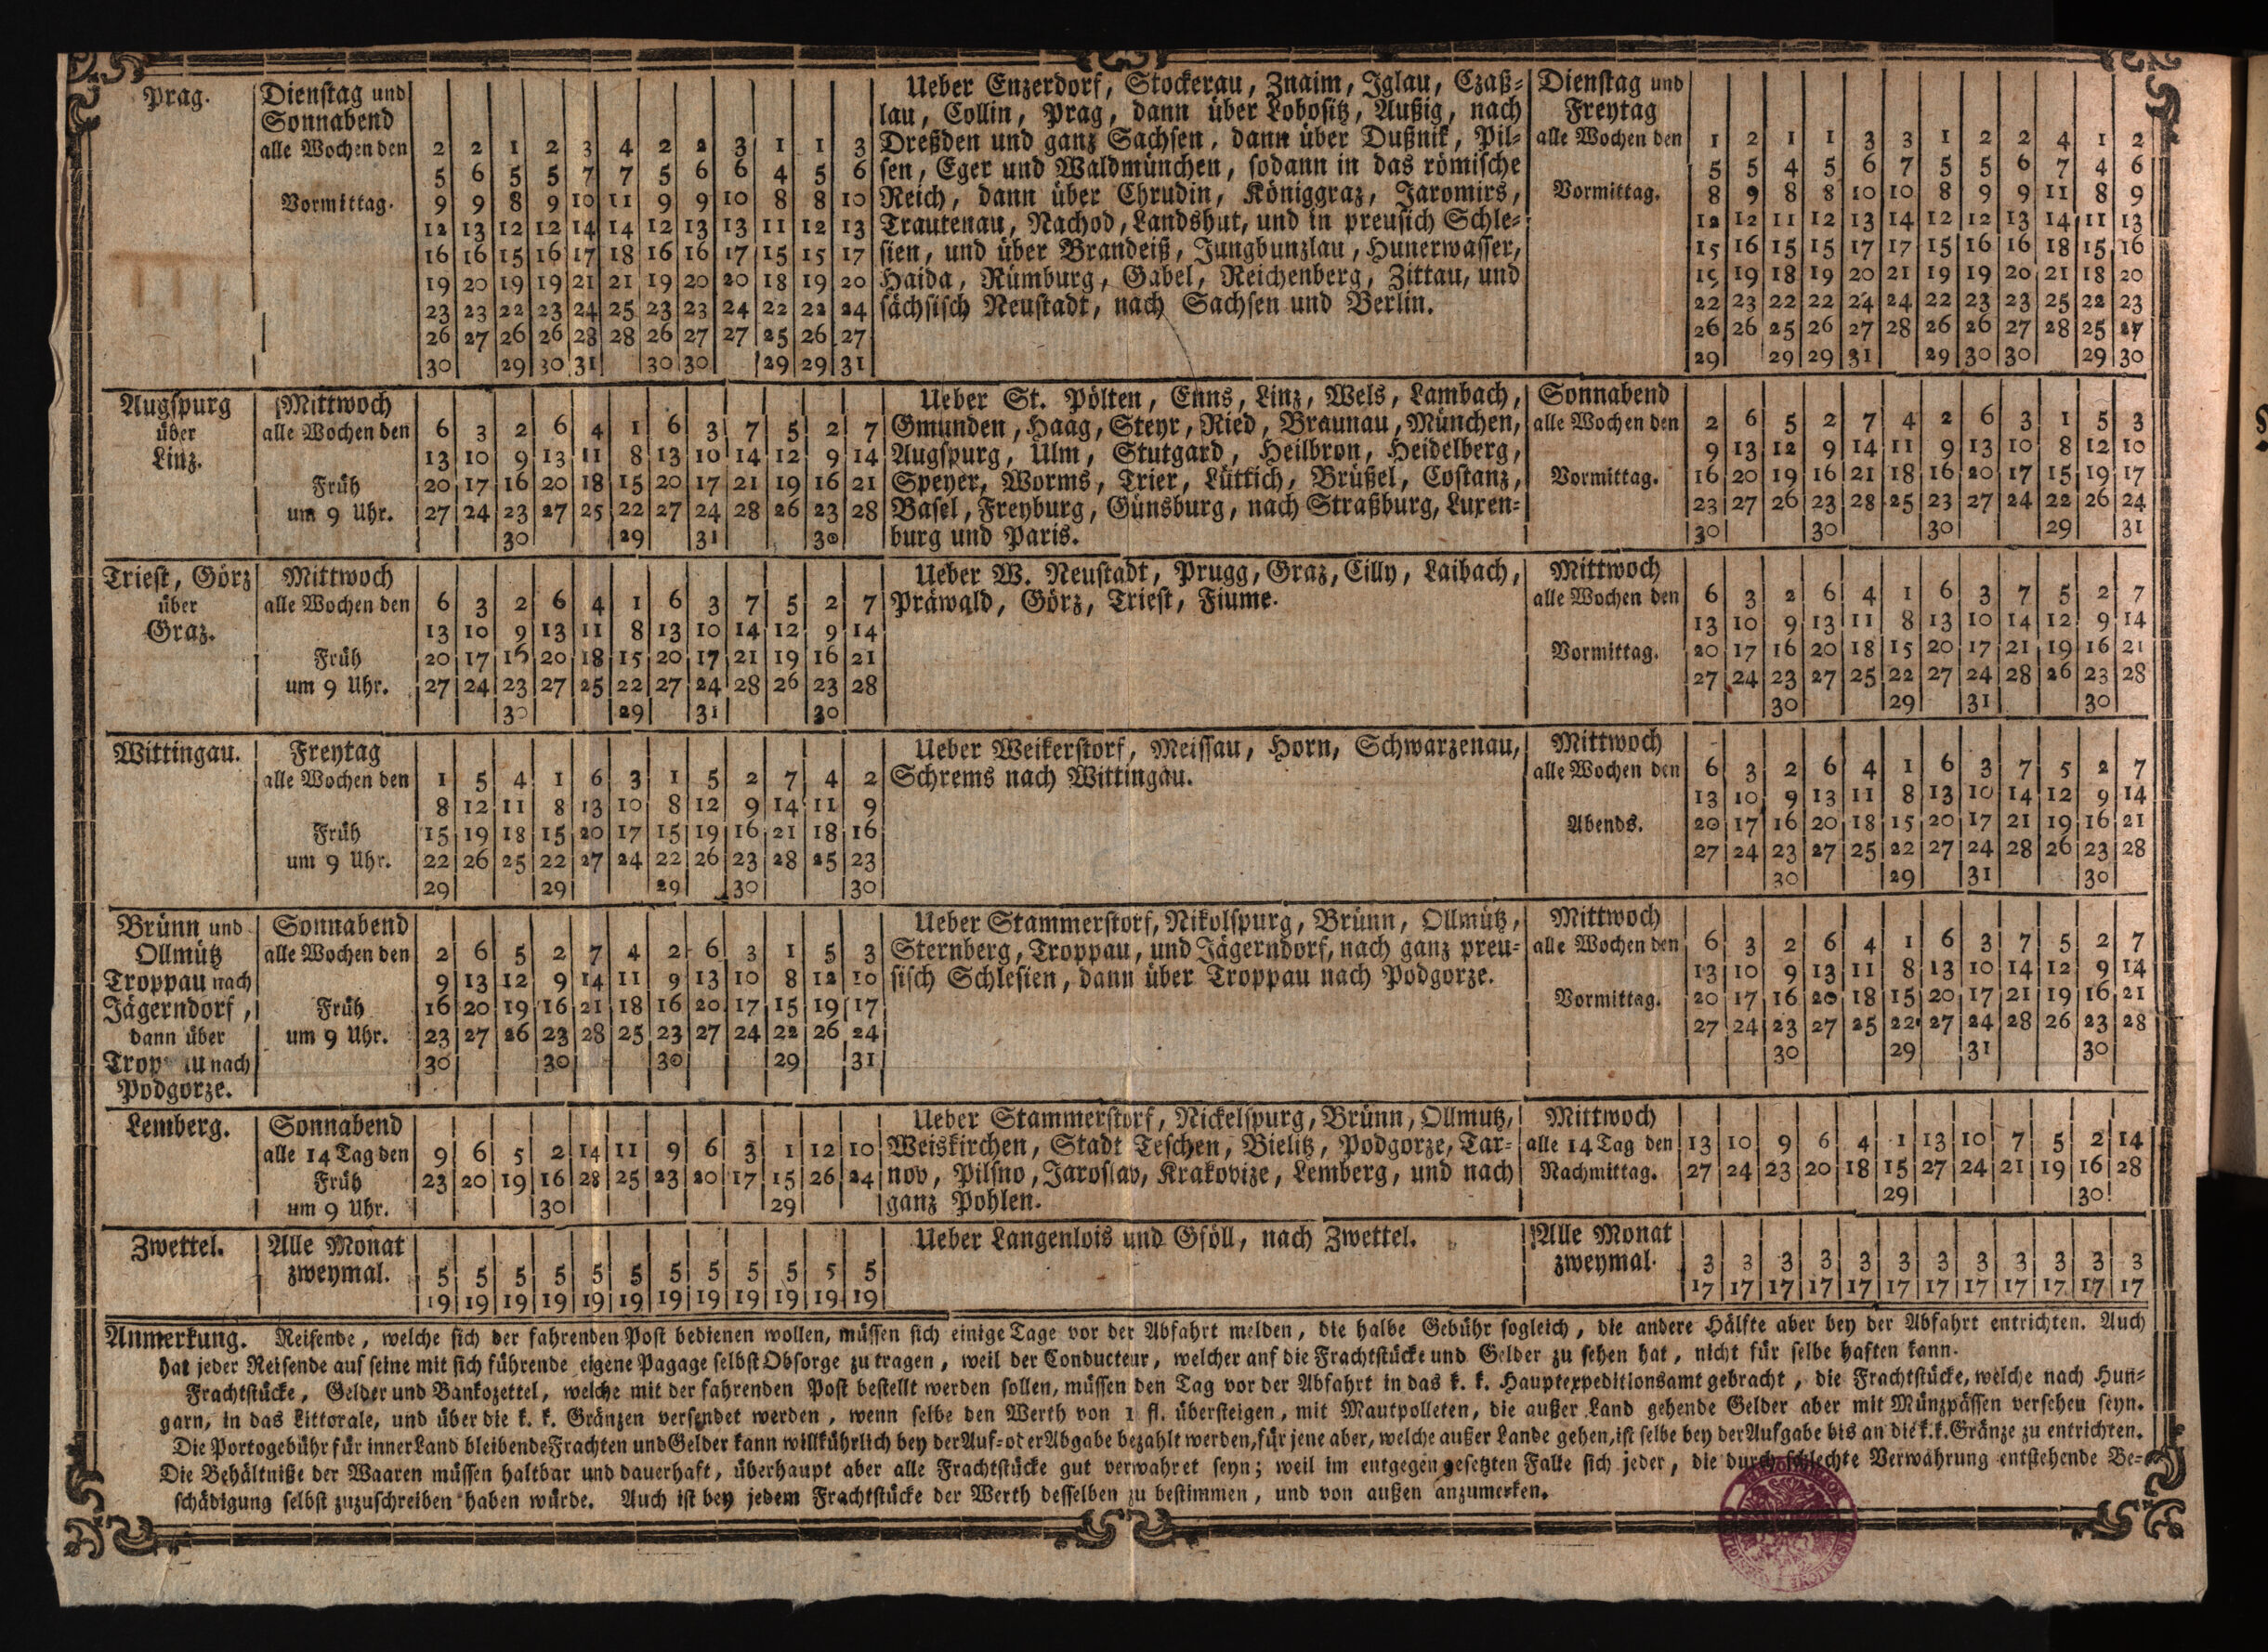 Prag.
Dienstag und
Sonnabend
alle Wochen den
Vormittag.
2 2 1 2 3 4 2 2 3 1 1 3
5 6 5 5 7 7 5 6 6 4 5 6
9 9 8 9 10 11 9 9 10 8 8 10
12 13 12 12 14 14 12 13 13 11 12 13
16 16 15 16 17 18 16 16 17 15 15 17
19 20 19 19 21 21 19 20 20 18 19 20
23 23 22 23 24 25 23 23 24 22 22 24
26 27 26 26 28 28 26 27 27 25 26 27
30 29 30 31 30 30 29 29 31
Ueber Enzerdorf, Stockerau, Znaim, Iglau, Czaß-
lau, Collin, Prag, dann über Lobositz, Außig, nach
Dreßden und ganz Sachsen, dann über Dußnik, Pil-
sen, Eger und Waldmünchen, sodann in das römische
Reich, dann über Chrudin, Königgraz, Jaromirs,
Trautenau, Nachod, Landshut, und in preusich Schle-
sien, und über Brandeiß, Jungbunzlau, Hunerwasser,
Haida, Rümburg, Gabel, Reichenberg, Zittau, und
sächsisch Neustadt, nach Sachsen und Berlin.
Dienstag und
Freytag
alle Wochen den
Vormittag.
1 2 1 1 3 3 1 2 2 4 1 2
5 5 4 5 6 7 5 5 6 7 4 6
8 9 8 8 10 10 8 9 9 11 8 9
12 12 11 12 13 14 12 12 13 14 11 13
15 16 15 15 17 17 15 16 16 18 15 16
19 19 18 19 20 21 19 19 20 21 18 20
22 23 22 22 24 24 22 23 23 25 22 23
26 26 25 26 27 28 26 26 27 28 25 27
29 29 29 31 29 30 30 29 30
Augspurg
über
Linz.
Mittwoch
alle Wochen den
Früh
um 9 Uhr.
6 3 2 6 4 1 6 3 7 5 2 7
13 10 9 13 11 8 13 10 14 12 9 14
20 17 16 20 18 15 20 17 21 19 16 21
27 24 23 27 25 22 27 24 28 26 23 28
30 29 31 30
Ueber St. Pölten, Enns, Linz, Wels, Lambach,
Gmunden, Haag, Steyr, Ried, Braunau, München,
Augspurg, Ulm, Stutgard, Heilbron, Heidelberg,
Speyer, Worms, Trier, Lüttich, Brüßel, Costanz,
Basel, Freyburg, Günsburg, nach Straßburg, Luxen-
burg und Paris.
Sonnabend
alle Wochen den
Vormittag.
2 6 5 2 7 4 2 6 3 1 5 3
9 13 12 9 14 11 9 13 10 8 12 10
16 20 19 16 21 18 16 20 17 15 19 17
23 27 26 23 28 25 23 27 24 22 26 24
30 30 30 29 31
Triest, Görz
über
Graz.
Mittwoch
alle Wochen den
Früh
um 9 Uhr.
6 3 2 6 4 1 6 3 7 5 2 7
13 10 9 13 11 8 13 10 14 12 9 14
20 17 16 20 18 15 20 17 21 19 16 21
27 24 23 27 25 22 27 24 28 26 23 28
30 29 31 30
Ueber W. Neustadt, Prugg, Graz, Cilly, Laibach,
Präwald, Görz, Triest, Fiume.
Mittwoch
alle Wochen den
Vormittag.
6 3 2 6 4 1 6 3 7 5 2 7
13 10 9 13 11 8 13 10 14 12 9 14
20 17 16 20 18 15 20 17 21 19 16 21
27 24 23 27 25 22 27 24 28 26 23 28
30 29 31 30
Wittingau.
Freytag
alle Wochen den
Früh
um 9 Uhr.
1 5 4 1 6 3 1 5 2 7 4 2
8 12 11 8 13 10 8 12 9 14 11 9
15 19 18 15 20 17 15 19 16 21 18 16
22 26 25 22 27 24 22 26 23 28 25 23
29 29 29 30 30
Ueber Weikerstorf, Meissau, Horn, Schwarzenau,
Schrems nach Wittingau.
Mittwoch
alle Wochen den
Abends.
6 3 2 6 4 1 6 3 7 5 2 7
13 10 9 13 11 8 13 10 14 12 9 14
20 17 16 20 18 15 20 17 21 19 16 21
27 24 23 27 25 22 27 24 28 26 23 28
30 29 31 30
Brünn und
Ollmütz
Troppau nach
Jägerndorf,
dann über
Trop u nach
Podgorze.
Sonnabend
alle Wochen den
Früh
um 9 Uhr.
2 6 5 2 7 4 2 6 3 1 5 3
9 13 12 9 14 11 9 13 10 8 12 10
16 20 19 16 21 18 16 20 17 15 19 17
23 27 26 23 28 25 23 27 24 22 26 24
30 30 30 29 31
Ueber Stammerstorf, Nikolspurg, Brünn, Ollmütz,
Sternberg, Troppau, und Jägerndorf, nach ganz preu-
sisch Schlesien, dann über Troppau nach Podgorze.
Mittwoch
alle Wochen den
Vormittag.
6 3 2 6 4 1 6 3 7 5 2 7
13 10 9 13 11 8 13 10 14 12 9 14
20 17 16 20 18 15 20 17 21 19 16 21
27 24 23 27 25 22 27 24 28 26 23 28
30 29 31 30
Lemberg.
Sonnabend
alle 14 Tag den
Früh
um 9 Uhr.
9 6 5 2 14 11 9 6 3 1 12 10
23 20 19 16 28 25 23 20 17 15 26 24
30 29
Ueber Stammerstorf, Nickelspurg, Brünn, Ollmutz,
Weiskirchen, Stadt Teschen, Bielitz, Podgorze, Tar-
nov, Pilsno, Jaroslav, Krakovize, Lemberg, und nach
ganz Pohlen.
Mittwoch
alle 14 Tag den
Nachmittag.
13 10 9 6 4 1 13 10 7 5 2 14
27 24 23 20 18 15 27 24 21 19 16 28
29 30
Zwettel.
Alle Monat
zweymal.
5 5 5 5 5 5 5 5 5 5 5 5
19 19 19 19 19 19 19 19 19 19 19 19
Ueber Langenlois und Gföll, nach Zwettel.
Alle Monat
zweymal.
3 3 3 3 3 3 3 3 3 3 3 3
17 17 17 17 17 17 17 17 17 17 17 17
Anmerkung. Reisende, welche sich der fahrenden Post bedienen wollen, müssen sich einige Tage vor der Abfahrt melden, die halbe Gebühr sogleich, die andere Hälfte aber bey der Abfahrt entrichten. Auch
hat jeder Reisende auf seine mit sich führende eigene Pagage selbst Obsorge zu tragen, weil der Conducteur, welcher auf die Frachtstücke und Gelder zu sehen hat, nicht für selbe haften kann.
Frachtstücke, Gelder und Bankozettel, welche mit der fahrenden Post bestellt werden sollen, müssen den Tag vor der Abfahrt in das k. k. Hauptexpeditionsamt gebracht, die Frachtstücke, welche nach Hun-
garn, in das Littorale, und über die k. k. Gränzen versendet werden, wenn selbe den Werth von 1 fl. übersteigen, mit Mautpolleten, die außer Land gehende Gelder aber mit Münzpässen versehen seyn.
Die Portogebühr für inner Land bleibende Frachten und Gelder kann willkührlich bey der Auf- oder Abgabe bezahlt werden, für jene aber, welche außer Lande gehen, ist selbe bey der Aufgabe bis an die k. k. Gränze zu entrichten.
Die Behältniße der Waaren müssen haltbar und dauerhaft, überhaupt aber alle Frachtstücke gut verwahret seyn; weil im entgegen gesetzten Falle sich jeder, die durch schlechte Verwahrung entstehende Be-
schädigung selbst zuzuschreiben haben würde. Auch ist bey jedem Frachtstücke der Werth desselben zu bestimmen, und von außen anzumerken.